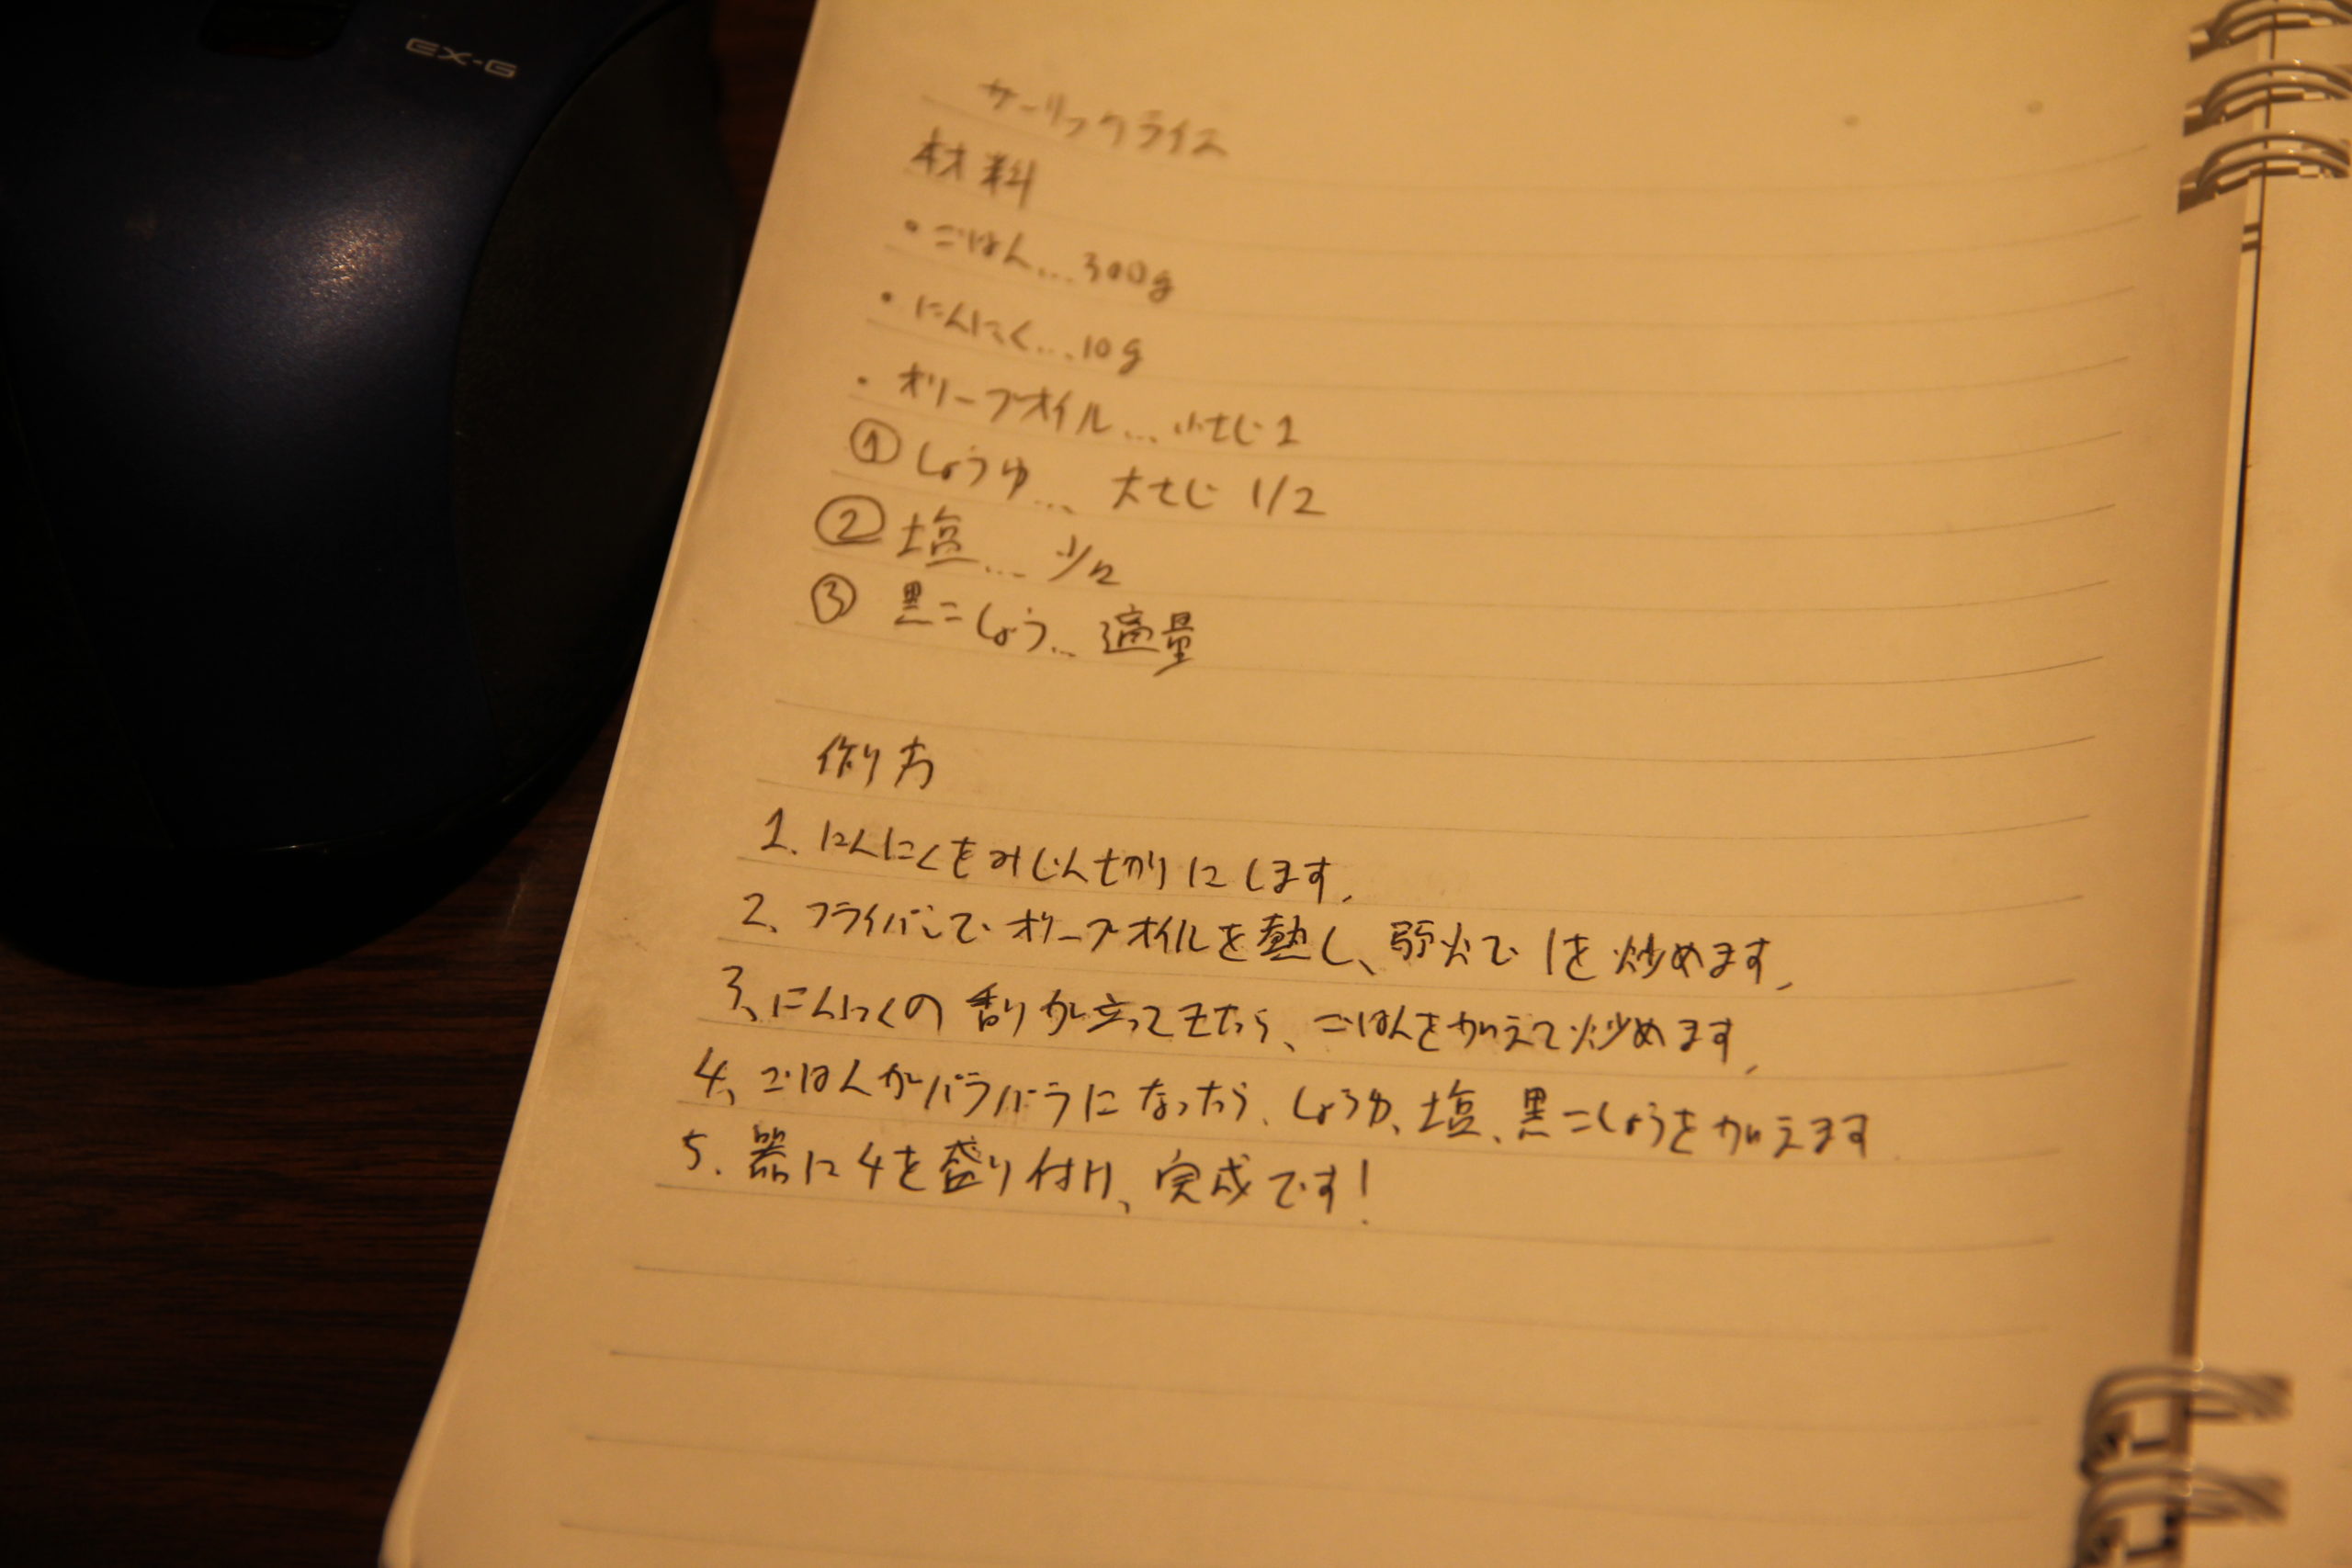 EX-G
ガーリックライス
材料
・ごはん... 300g
・にんにく... 10g
・オリーブオイル... 小さじ1
① しょうゆ... 大さじ 1/2
② 塩... 少々
③ 黒こしょう... 適量
作り方
1. にんにくをみじん切りにします。
2. フライパンでオリーブオイルを熱し、弱火で1を炒めます。
3. にんにくの香りが立ってきたら、ごはんを加えて炒めます。
4. ごはんがパラパラになったら、しょうゆ、塩、黒こしょうを加えます
5. 器に4を盛り付け、完成です!